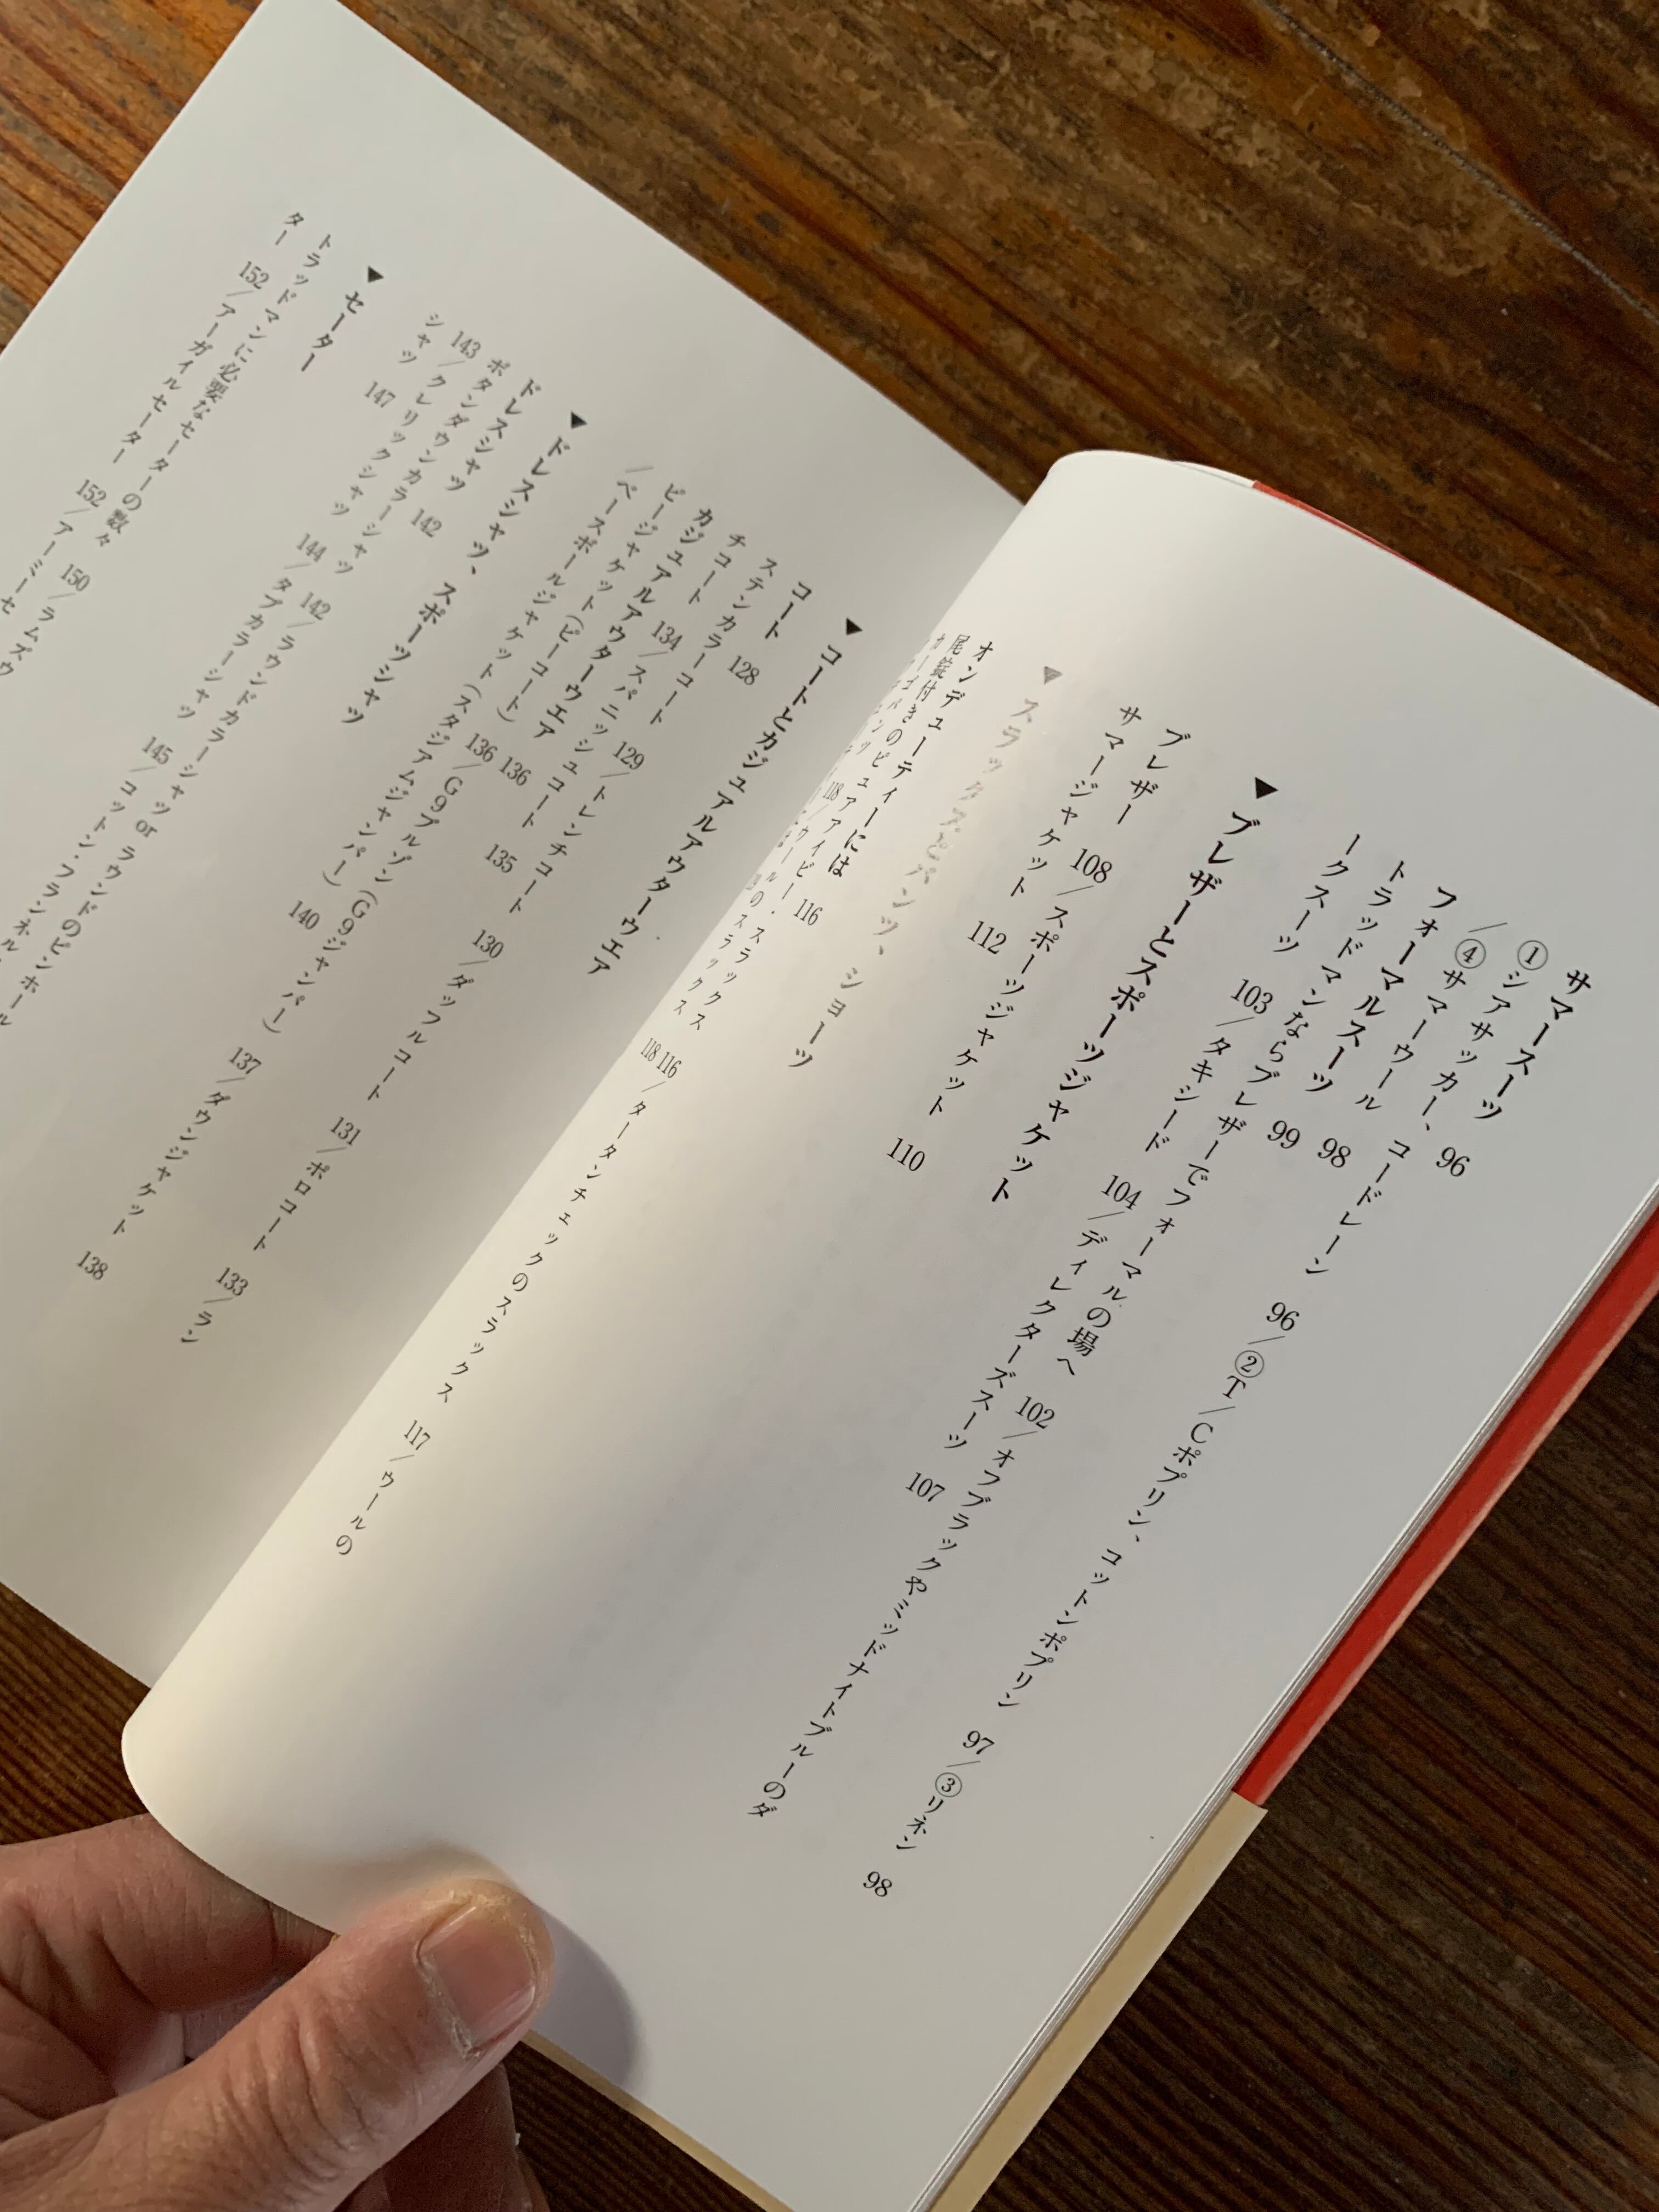 サマースーツ 96
①シアサッカー、コードレーン 96／②T／Cポプリン、コットンポプリン 97／③リネン 98
／④サマーウール 98
フォーマルスーツ 99
トラッドマンならブレザーでフォーマルの場へ 102／オフブラックやミッドナイトブルーのダ
ークスーツ 103／タキシード 104／ディレクターズスーツ 107
▼ブレザーとスポーツジャケット
ブレザー 108／スポーツジャケット 110
サマージャケット 112
▼スラックスとパンツ、ショーツ
オンデューティーには 116
尾錠付きのピュアアイビー・スラックス 116／タータンチェックのスラックス 117／ウールの
▼コートとカジュアルアウターウエア
コート 128
ステンカラーコート 129／トレンチコート 130／ダッフルコート 131／ポロコート 133／ラン
チコート 134／スパニッシュコート 135
カジュアルアウターウエア 136
ピージャケット（ピーコート） 136／G9ブルゾン（G9ジャンパー） 137／ダウンジャケット 138
／ベースボールジャケット（スタジアムジャンパー） 140
▼ドレスシャツ、スポーツシャツ
ドレスシャツ 142
ボタンダウンカラーシャツ 142／ラウンドカラーシャツorラウンドのピンホール
143／クレリックシャツ 144／タブカラーシャツ 145／コットン・フランネル・
シャツ 147
▼セーター
トラッドマンに必要なセーターの数々 150／ラムズウ
ター 152／アーガイルセーター 152／アーミーセ